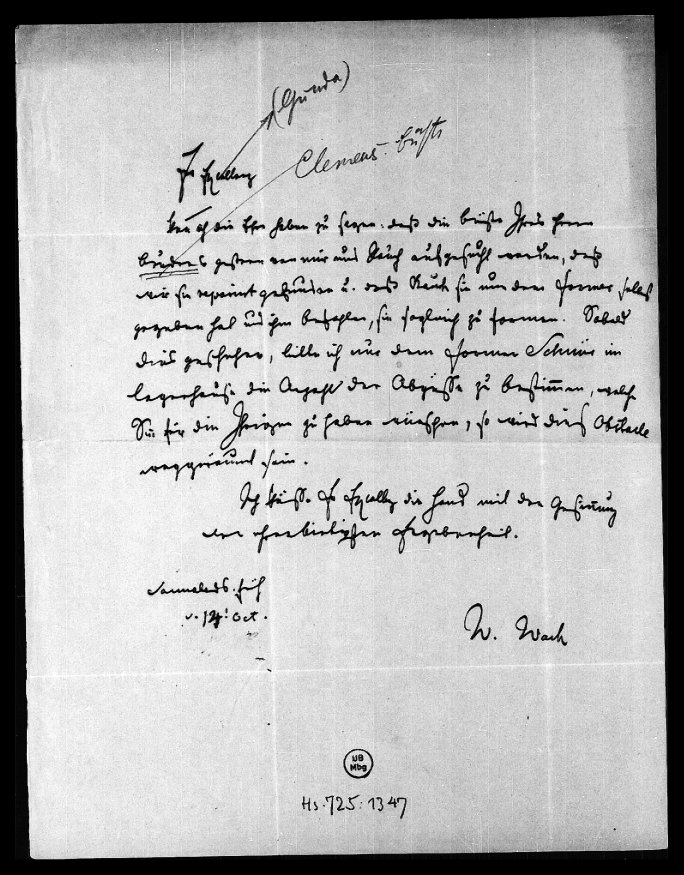 (Gunda)
Clemens. büste
Ew Excellenz
habe ich die Ehre haben zu sagen: daß die büste Ihres Herrn
bruders gestern von mir und Rauch aufgesucht worden, daß
wir sie repariert gefunden u. daß Rauch sie nun dem Former selbst
gegeben hat und ihm befohlen, sie sogleich zu formen. Sobald
dies geschehen, bitte ich nur dem Former Schnür im
lagerhause die Anzahl der Abgüsse zu bestimmen, welche
Sie für die Ihrigen zu haben wünschen, so wird dies Obstacle
weggeräumt sein.
Ich küsse Ew Excellenz die Hand mit der Gesinnung
der ehrerbietigsten Ergebenheit.
Sonnabends. früh
d. 14t Oct.
W. Wach
UB
Mbg
Hs. 725:1347